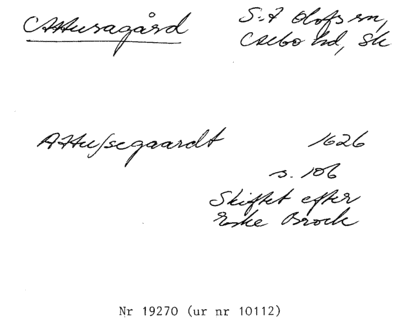 Attusagård
S:t Olofs sn,
Albo hd, Sk
Attu/segaardt 1626
s. 106
Skiftet efter
Eske Brock
Nr 19270 (ur nr 10112)